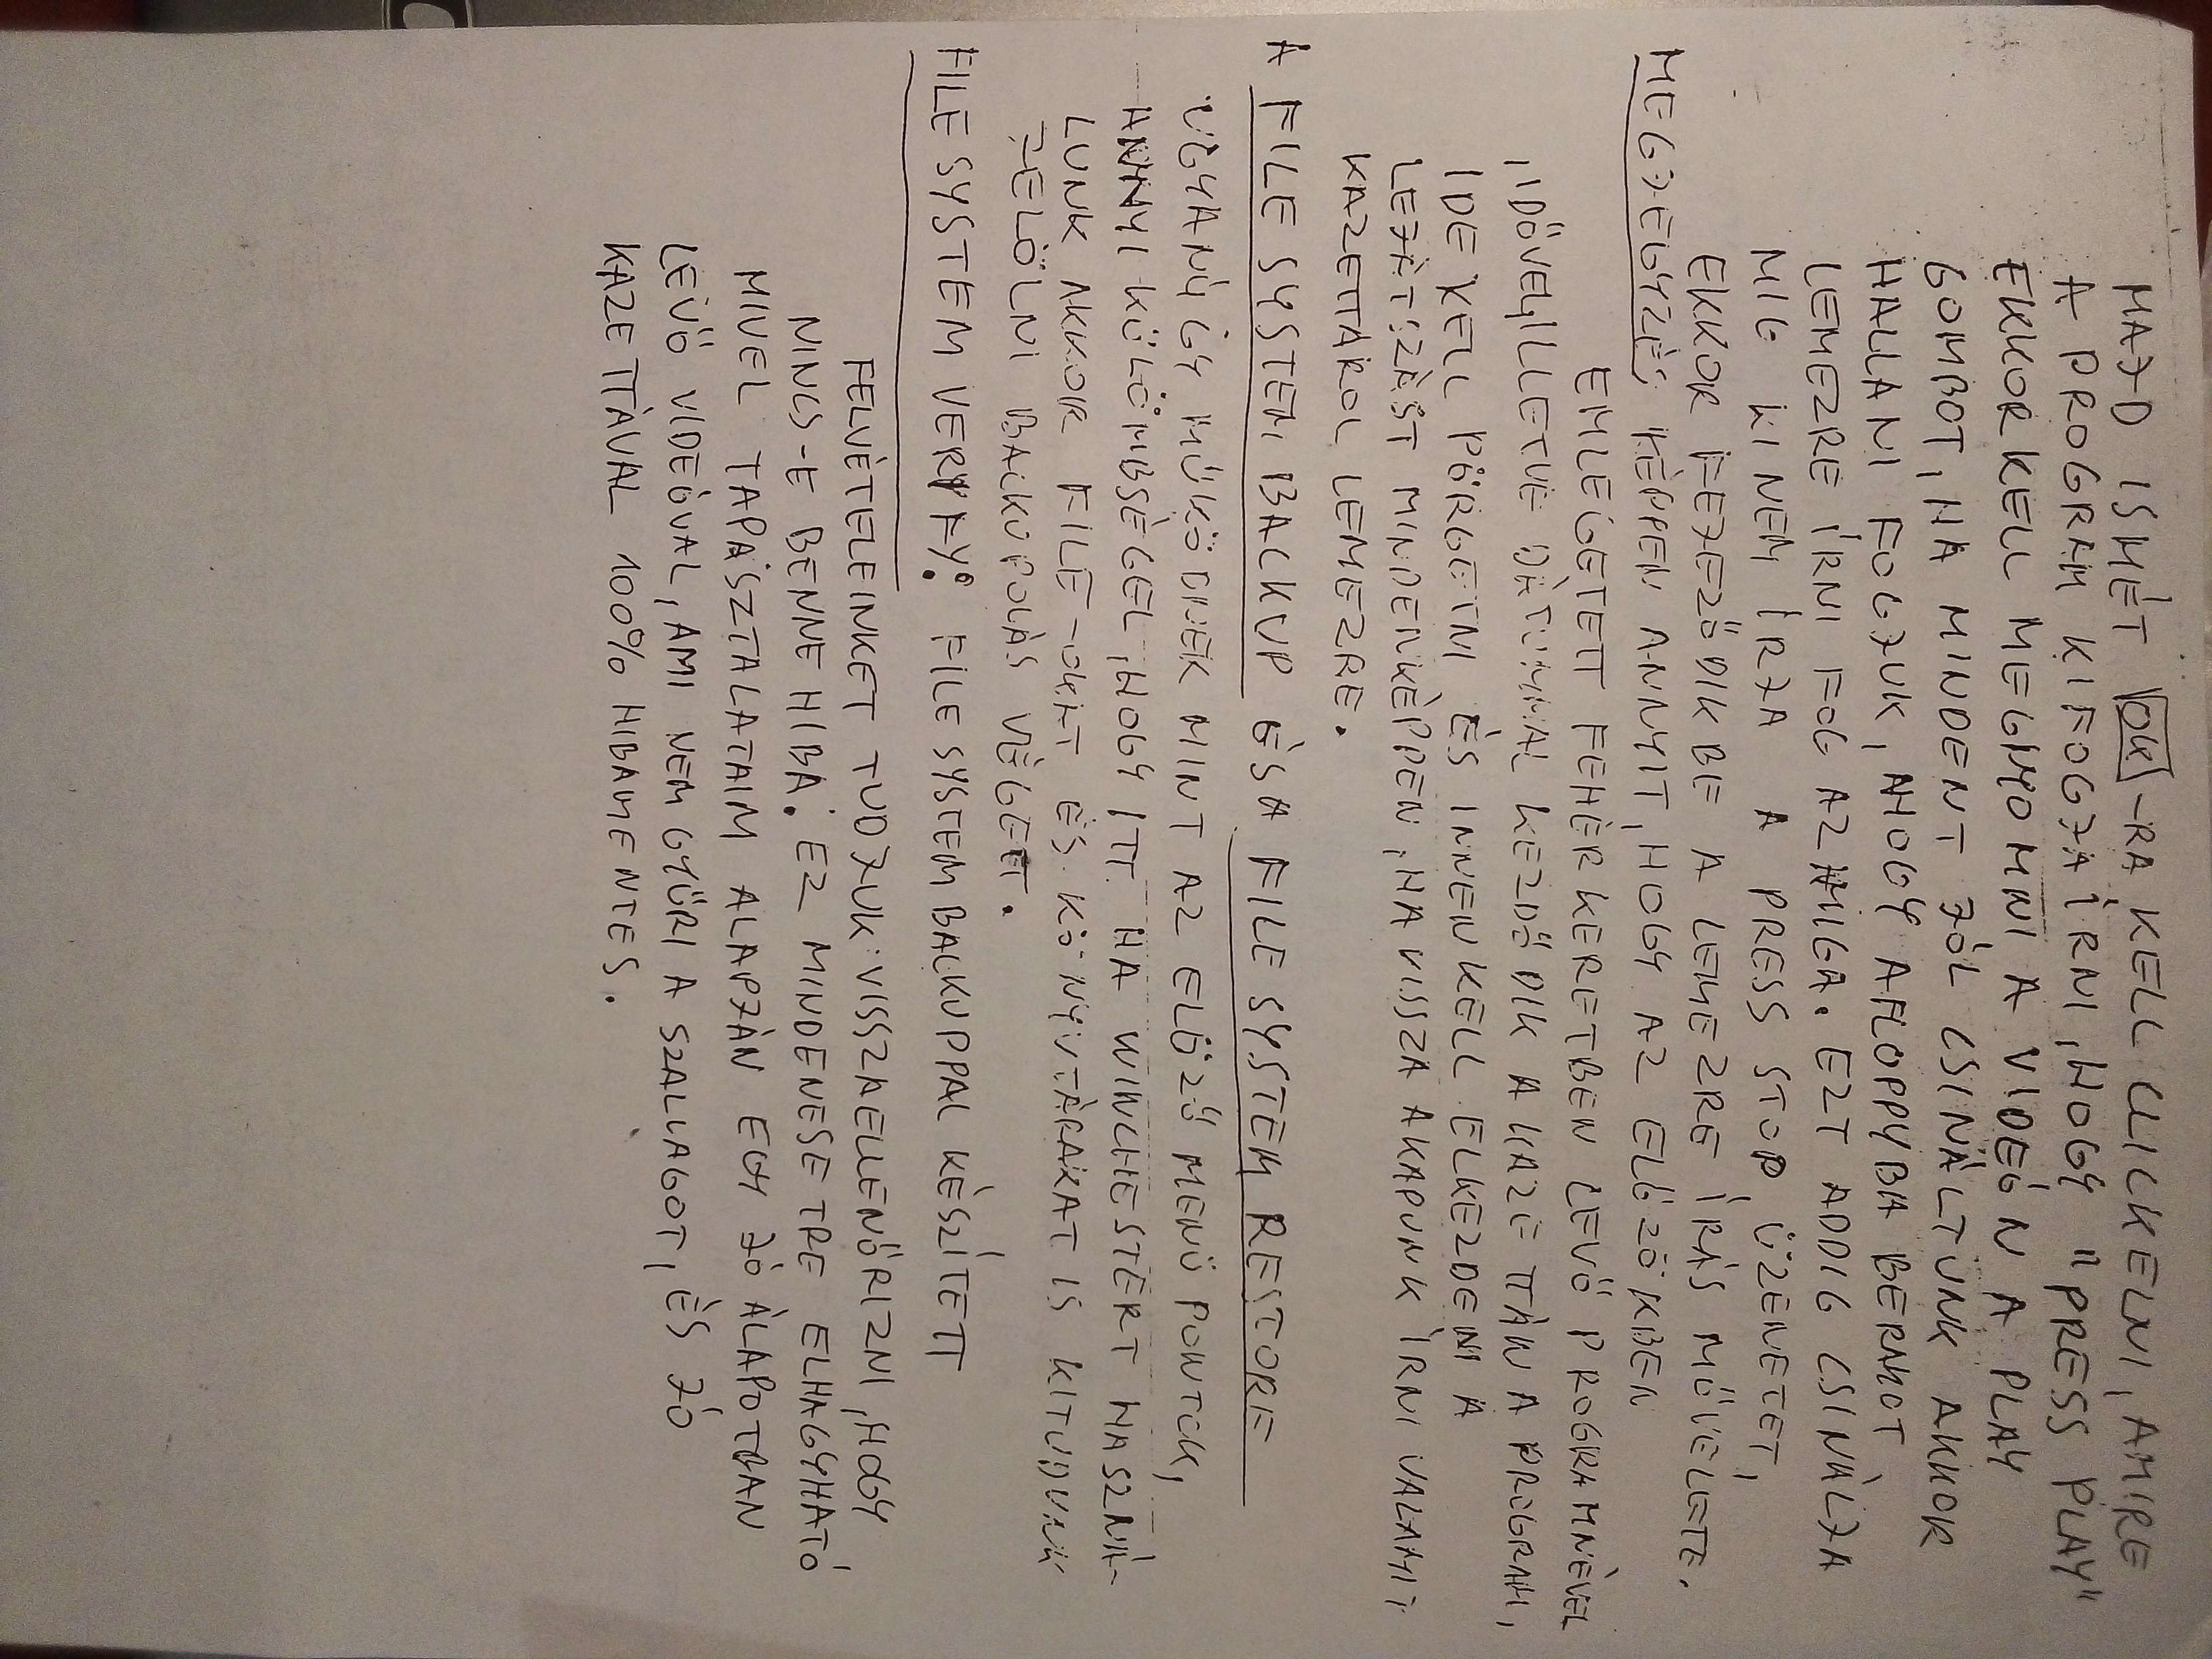 MAJD ISMÉT OK -RA KELL CLICKELNI, AMIRE
A PROGRAM KI FOGJA ÍRNI, HOGY "PRESS PLAY"
EKKOR KELL MEGNYOMNI A VIDEÓN A PLAY
GOMBOT, HA MINDENT JÓL CSINÁLTUNK AKKOR
HALLANI FOGJUK, AHOGY A FLOPPYBA BERAKOT
LEMEZRE ÍRNI FOG AZ AMIGA. EZT ADDIG CSINÁLJA
MIG KI NEM ÍRJA A PRESS STOP ÜZENETET,
EKKOR FEJEZŐDIK BE A LEMEZRE ÍRÁS MŰVELETE.
MEGJEGYZÉS KÉPPEN ANNYIT, HOGY AZ ELŐZŐKBEN
EMLEGETETT FEHÉR KERETBEN LEVŐ PROGRAMNÉVEL
IDŐVEL, ILLETVE DÁTUMMAL KEZDŐDIK A KAZETTÁN A PROGRAM,
IDE KELL PÖRGETNI ÉS INNEN KELL ELKEZDENI A
LEJÁTSZÁST MINDENKÉPPEN, HA VISSZA AKAPUNK ÍRNI VALAMIT
KAZETTÁROL LEMEZRE.
A FILE SYSTEM BACKUP ÉS A FILE SYSTEM RESTORE
UGYANÚGY MŰKÖDNEK MINT AZ ELŐZŐ MENÜ PONTOK,
ANNYI KÜLÖMBSÉGEL, HOGY ITT HA WINCHESTERT HASZNÁ-
LUNK AKKOR FILE-OKAT ÉS KÖNYVTÁRAKAT IS KITUDUNK
JELÖLNI BACKUPOLÁS VÉGETT.
FILE SYSTEM VERIFY: FILE SYSTEM BACKUPPAL KÉSZÍTETT
FELVÉTELEINKET TUDJUK VISSZAELLENŐRIZNI, HOGY
NINCS-E BENNE HIBA. EZ MINDENESETRE ELHAGYHATÓ
MIVEL TAPASZTALATAIM ALAPJÁN EGY JÓ ÁLAPOTBAN
LEVŐ VIDEÓVAL, AMI NEM GYŰRI A SZALLAGOT, ÉS JÓ
KAZETTÁVAL 100% HIBAMENTES.